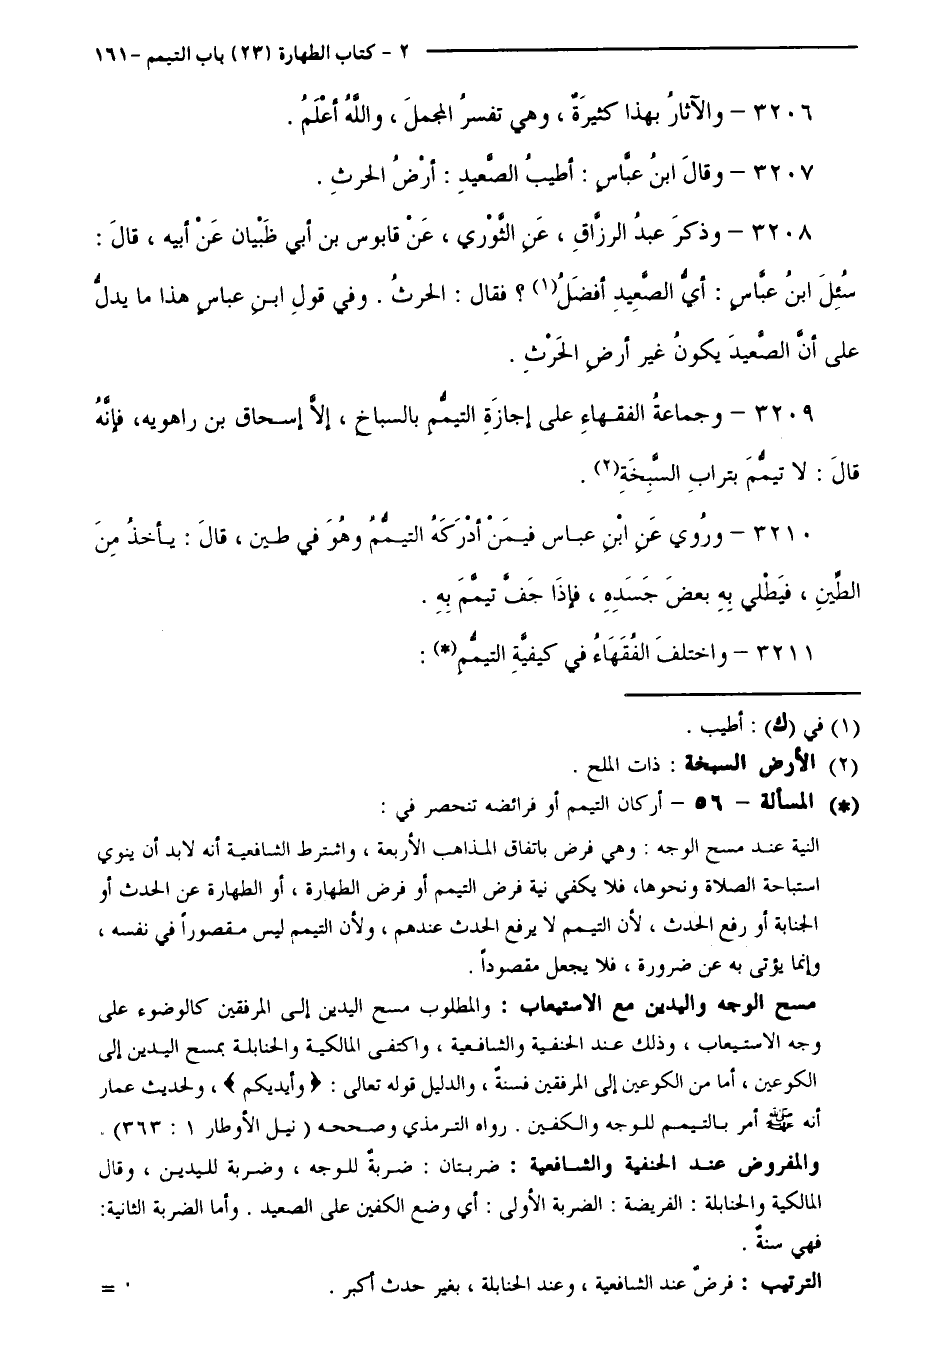 ٢ - كتاب الطهارة (٢٣) باب التيمم -١٦١
٣٢٠٦ - والآثارُ بهذا كثيرَةٌ ، وهي تفسرُ المجملَ ، واللَّهُ أعْلَمُ .
٣٢٠٧ - وقالَ ابنُ عبَّاسٍ : أطيبُ الصَّعيدِ : أرْضُ الحرثِ .
٣٢٠٨ - وذكرَ عبدُ الرزَّاقِ ، عَنِ الثَّوْري ، عَنْ قابوس بن أبي ظَبْيان عَنْ أبيه ، قالَ :
سُئِلَ ابنُ عبَّاسٍ : أيُّ الصَّعِيدِ أفضَلُ(١) ؟ فقال : الحرثُ . وفي قولِ ابنِ عباسٍ هذا ما يدلُّ
على أنَّ الصَّعيدَ يكونُ غير أرضِ الحَرْثِ .
٣٢٠٩ - وجماعةُ الفقهاءِ على إجازَةِ التيمُّمِ بالسباخِ ، إلاَّ إسحاق بن راهويه، فإنَّهُ
قالَ : لا تيمُّمَ بترابِ السَّبِخَةِ(٢) .
٣٢١٠ - ورُوي عَنِ ابْنِ عباس فيمَنْ أدْرَكَهُ التيمُّمُ وهُوَ في طين ، قالَ : يأخذُ مِنَ
الطِّينِ ، فيَطْلي بِهِ بعضَ جَسَدِهِ ، فإذَا جَفَّ تيمَّمَ بِهِ .
٣٢١١ - واختلفَ الفُقَهَاءُ في كيفيَّةِ التيمُّمِ(*) :
(١) في (ك) : أطيب .
(٢) الأرض السبخة : ذات الملح .
(*) المسألة - ٥٦ - أركان التيمم أو فرائضه تنحصر في :
النية عند مسح الوجه : وهي فرض باتفاق المذاهب الأربعة ، واشترط الشافعية أنه لابد أن ينوي
استباحة الصلاة ونحوها، فلا يكفي نية فرض التيمم أو فرض الطهارة ، أو الطهارة عن الحدث أو
الجنابة أو رفع الحدث ، لأن التيمم لا يرفع الحدث عندهم ، ولأن التيمم ليس مقصوراً في نفسه ،
وإنما يؤتى به عن ضرورة ، فلا يجعل مقصوداً .
مسح الوجه واليدين مع الاستيعاب : والمطلوب مسح اليدين إلى المرفقين كالوضوء على
وجه الاستيعاب ، وذلك عند الحنفية والشافعية ، واكتفى المالكية والحنابلة بمسح اليدين إلى
الكوعين ، أما من الكوعين إلى المرفقين فسنةٌ ، والدليل قوله تعالى : ﴿ وأيديكم ﴾ ، ولحديث عمار
أنه ﷺ أمر بالتيمم للوجه والكفين . رواه الترمذي وصححه ( نيل الأوطار ١ : ٣٦٣) .
والمفروض عند الحنفية والشافعية : ضربتان : ضربةٌ للوجه ، وضربة لليدين ، وقال
المالكية والحنابلة : الفريضة : الضربة الأولى : أي وضع الكفين على الصعيد . وأما الضربة الثانية:
فهي سنةٌ .
الترتيب : فرضٌ عند الشافعية ، وعند الحنابلة ، بغير حدث أكبر . =